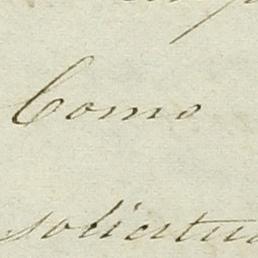 Como
solicitu